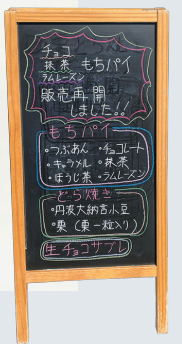 チョコ
抹茶 もちパイ
ラムレーズン
販売再開
しました!!
もちパイ
・つぶあん ・チョコレート
・キャラメル ・抹茶
・ほうじ茶 ・ラムレーズン
どら焼き
・丹波大納言小豆
・栗(栗一粒入り)
生チョコサブレ